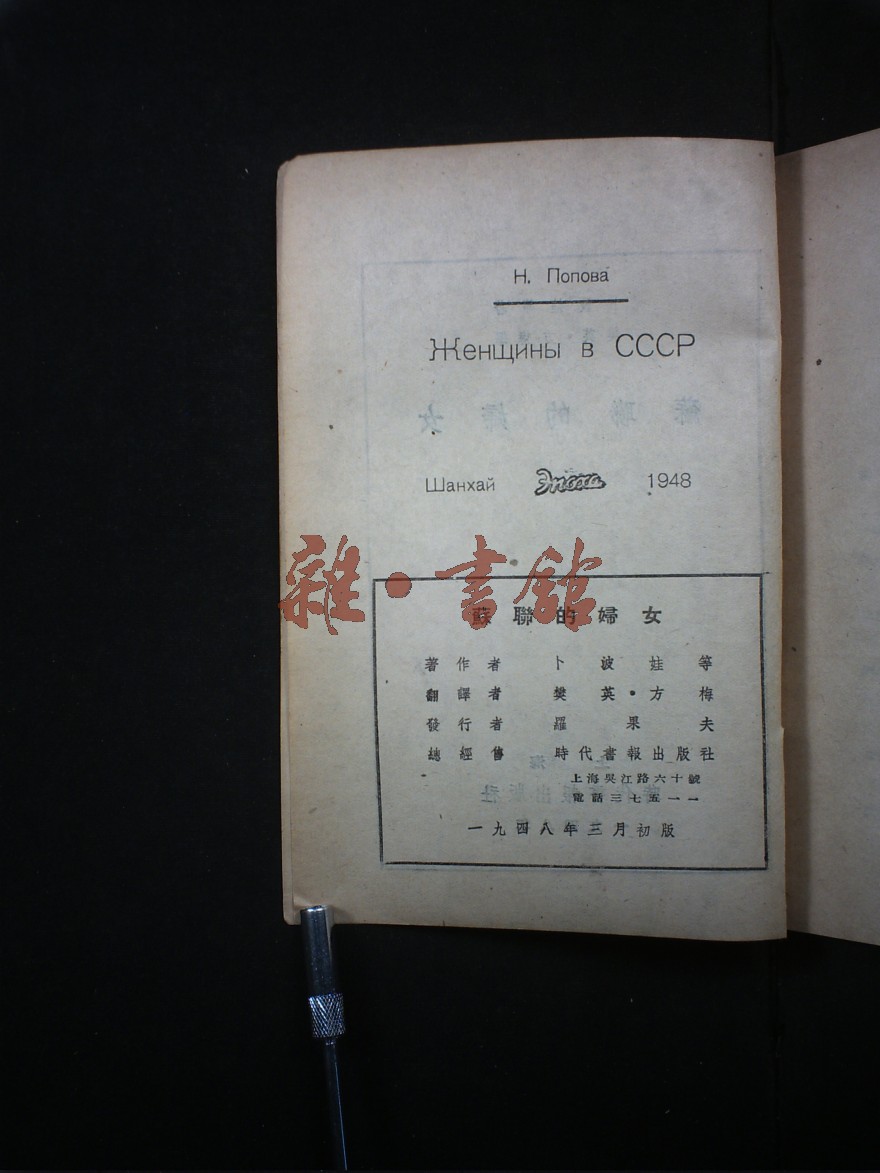 Н. Попова
Женщины в СССР
Шанхай Эпоха 1948
雜·書館
蘇聯的婦女
著作者 卜波娃等
翻譯者 樊英·方梅
發行者 羅果夫
總經售 時代書報出版社
上海吳江路六十號
電話三七五一一
一九四八年三月初版